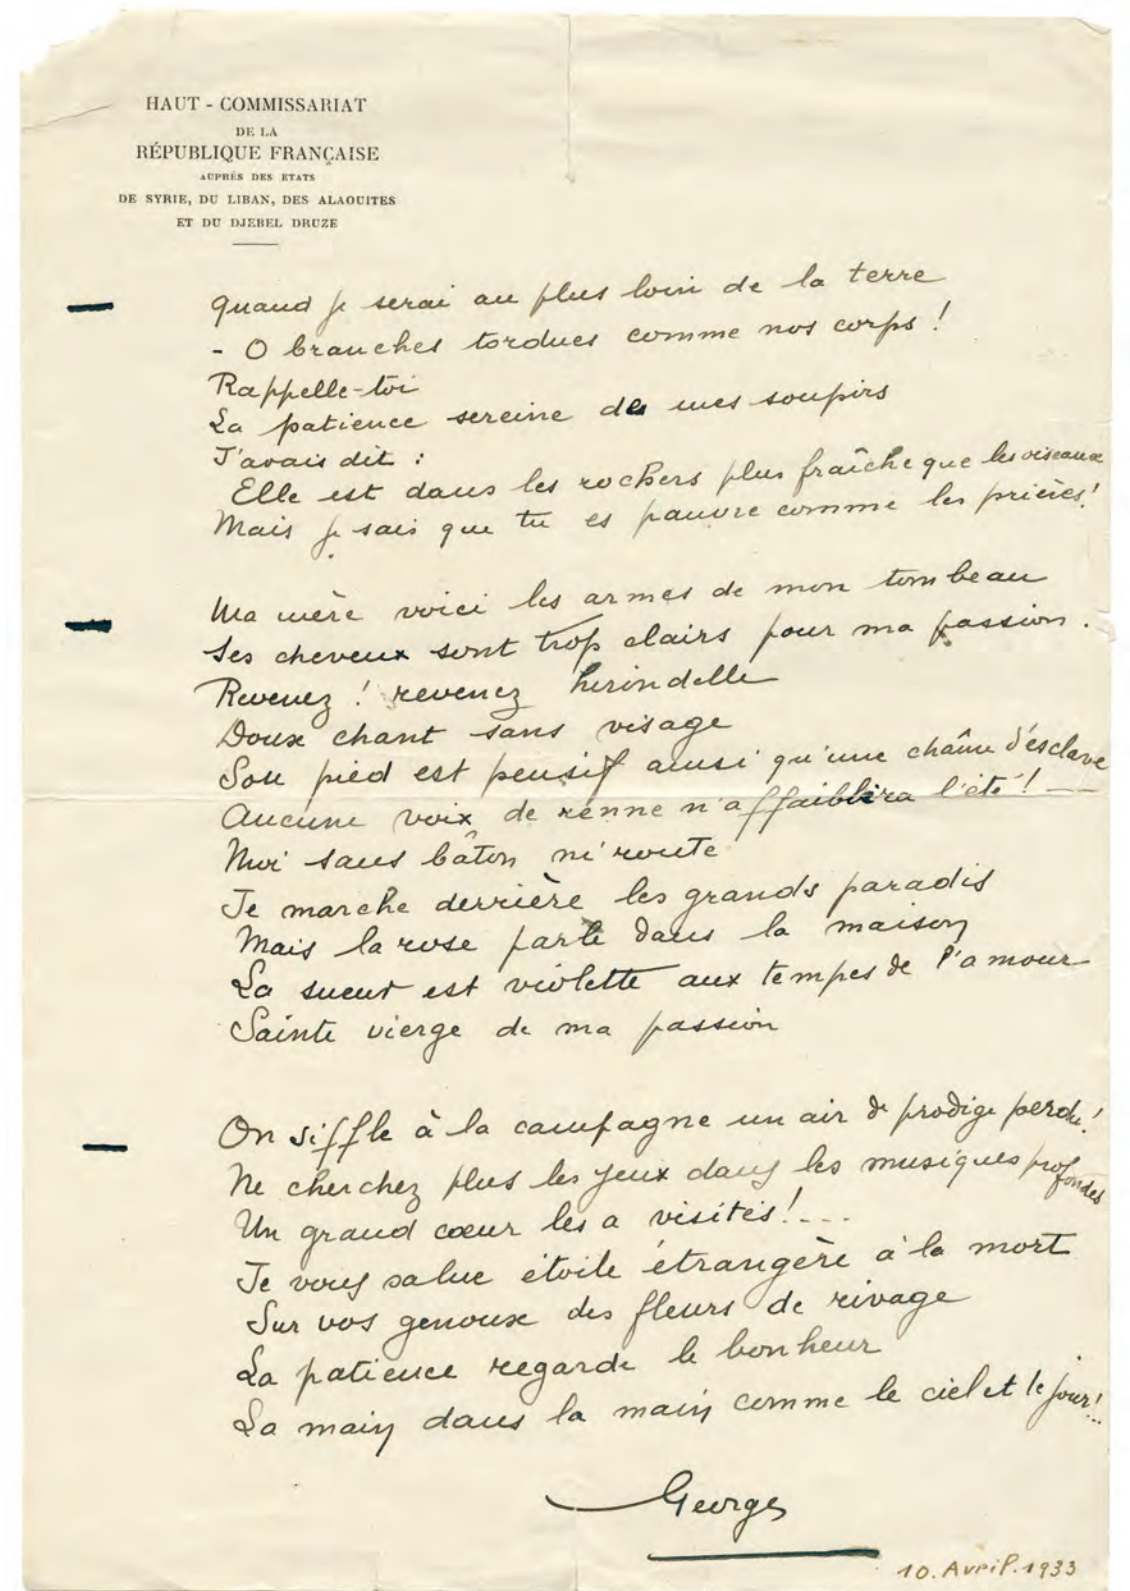 HAUT - COMMISSARIAT
DE LA
RÉPUBLIQUE FRANÇAISE
AUPRÈS DES ETATS
DE SYRIE, DU LIBAN, DES ALAOUITES
ET DU DJEBEL DRUZE
Quand je serai au plus loin de la terre
- O branches tordues comme nos corps !
Rappelle-toi
La patience sereine de mes soupirs
J'avais dit :
Elle est dans les rochers plus fraîche que les oiseaux
Mais je sais que tu es pauvre comme les prières !
Ma mère voici les armes de mon tombeau
Ses cheveux sont trop clairs pour ma passion.
Revenez ! revenez hirondelle
Doux chant sans visage
Son pied est pensif ainsi qu'une chaîne d'esclave
Aucune voix de renne n'affaiblira l'été ! --
Moi sans bâton ni route
Je marche derrière les grands paradis
Mais la rose parle dans la maison
La sueur est violette aux tempes de l'amour
Sainte vierge de ma passion
On siffle à la campagne un air de prodige perdu !
Ne cherchez plus les yeux dans les musiques profondes
Un grand cœur les a visités ! ...
Je vous salue étoile étrangère à la mort
Sur vos genoux des fleurs de rivage
La patience regarde le bonheur
La main dans la main comme le ciel et le jour ! ...
Georges
10. Avril. 1933